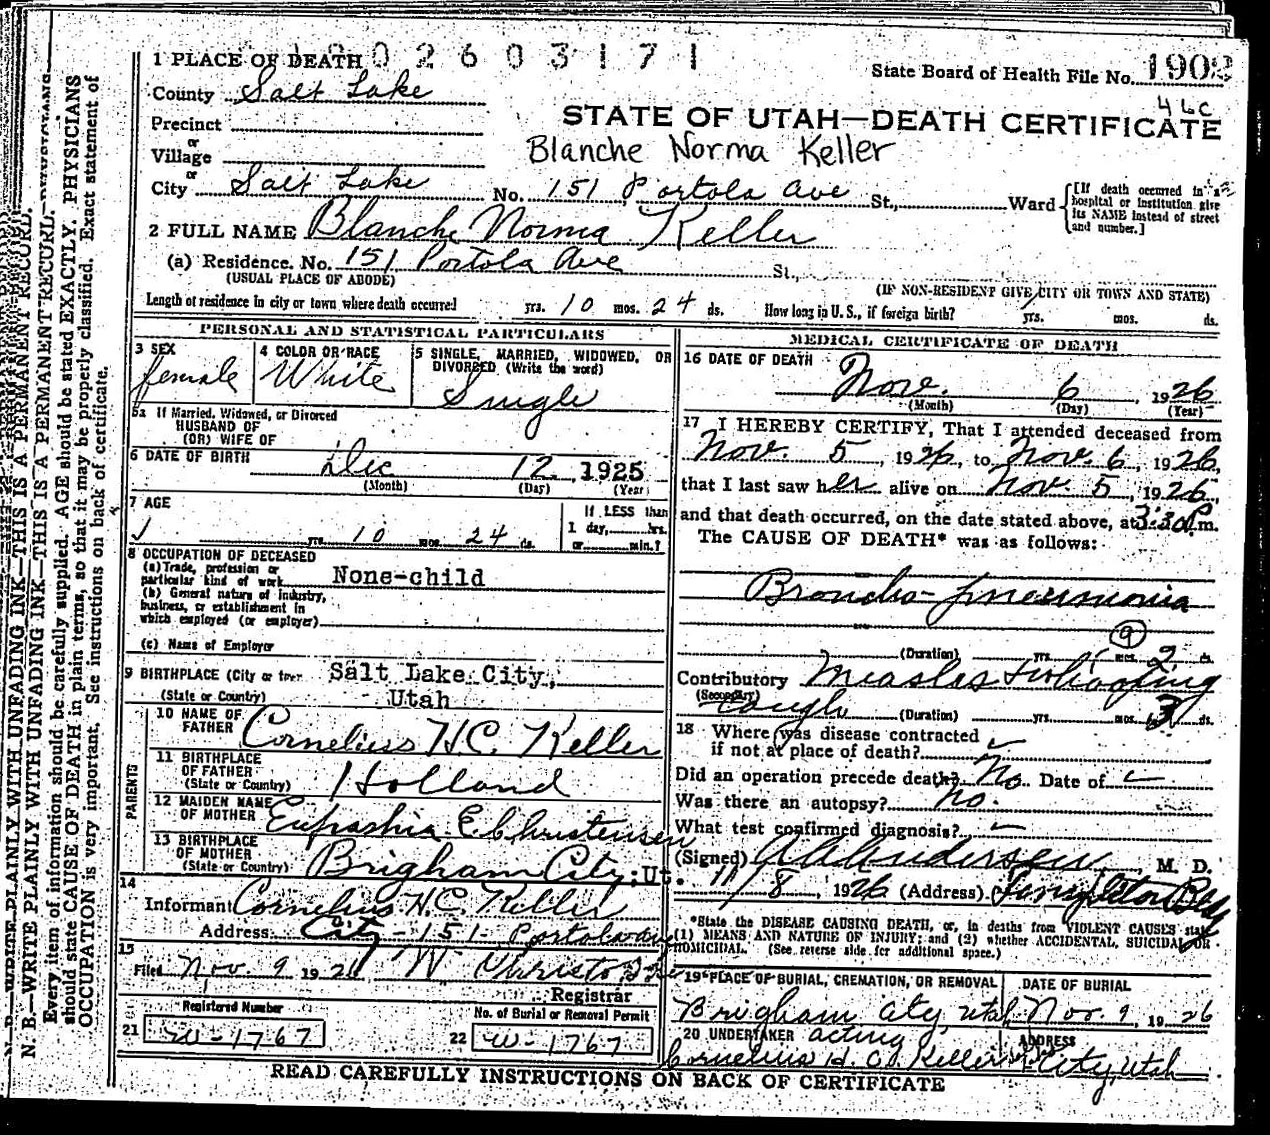 1 PLACE OF DEATH
1 9 0 2 6 0 3 1 7 1
State Board of Health File No. 1902
County Salt Lake
46C
STATE OF UTAH—DEATH CERTIFICATE
Precinct
or
Village
Blanche Norma Keller
or
City Salt Lake No. 151 Portola Ave St., Ward
[If death occurred in a hospital or institution give its NAME instead of street and number.]
2 FULL NAME Blanche Norma Keller
(a) Residence. No. 151 Portola Ave St.,
(USUAL PLACE OF ABODE)
(IF NON-RESIDENT GIVE CITY OR TOWN AND STATE)
Length of residence in city or town where death occurred yrs. 10 mos. 24 ds. How long in U. S., if foreign birth? yrs. mos. ds.
PERSONAL AND STATISTICAL PARTICULARS
3 SEX female
4 COLOR OR RACE White
5 SINGLE, MARRIED, WIDOWED, OR DIVORCED (Write the word) Single
5a If Married, Widowed, or Divorced
HUSBAND OF
(OR) WIFE OF
6 DATE OF BIRTH Dec 12, 1925
(Month) (Day) (Year)
7 AGE
yrs. 10 mos. 24 ds.
If LESS than 1 day, hrs. or min.?
8 OCCUPATION OF DECEASED
(a) Trade, profession or particular kind of work None-child
(b) General nature of industry, business, or establishment in which employed (or employer)
(c) Name of Employer
9 BIRTHPLACE (City or town Salt Lake City,
(State or Country) Utah
PARENTS
10 NAME OF FATHER Cornelius H.C. Keller
11 BIRTHPLACE OF FATHER (State or Country) Holland
12 MAIDEN NAME OF MOTHER Euphashia E. Christensen
13 BIRTHPLACE OF MOTHER (State or Country) Brigham City, Ut.
14
Informant Cornelius H.C. Keller
Address City - 151 - Portola Ave
15
Filed Nov. 9 1926
Registrar
Registered Number
21 W-1767
No. of Burial or Removal Permit
22 W-1767
MEDICAL CERTIFICATE OF DEATH
16 DATE OF DEATH
Nov. 6, 1926
(Month) (Day) (Year)
17 I HEREBY CERTIFY, That I attended deceased from
Nov. 5, 1926, to Nov. 6, 1926,
that I last saw her alive on Nov. 5, 1926,
and that death occurred, on the date stated above, at 3:30 P. m.
The CAUSE OF DEATH* was as follows:
Broncho-pneumonia
9
(Duration) yrs. mos. 2 ds.
Contributory Measles & Whooping
(Secondary) Cough (Duration) yrs. mos. 3 ds.
18 Where was disease contracted
if not at place of death?
Did an operation precede death? No Date of
Was there an autopsy? No.
What test confirmed diagnosis?
(Signed) Andersen, M. D.
11/8, 1926 (Address) Templeton Bldg
*State the DISEASE CAUSING DEATH, or, in deaths from VIOLENT CAUSES state (1) MEANS AND NATURE OF INJURY; and (2) whether ACCIDENTAL, SUICIDAL OR HOMICIDAL. (See reverse side for additional space.)
19 PLACE OF BURIAL, CREMATION, OR REMOVAL
Brigham City, Utah
DATE OF BURIAL
Nov. 9, 1926
20 UNDERTAKER acting
Cornelius H. C. Keller
ADDRESS
City, Utah
READ CAREFULLY INSTRUCTIONS ON BACK OF CERTIFICATE
N. B.—WRITE PLAINLY WITH UNFADING INK—THIS IS A PERMANENT RECORD.
Every item of information should be carefully supplied. AGE should be stated EXACTLY. PHYSICIANS
should state CAUSE OF DEATH in plain terms, so that it may be properly classified. Exact statement of
OCCUPATION is very important. See instructions on back of certificate.